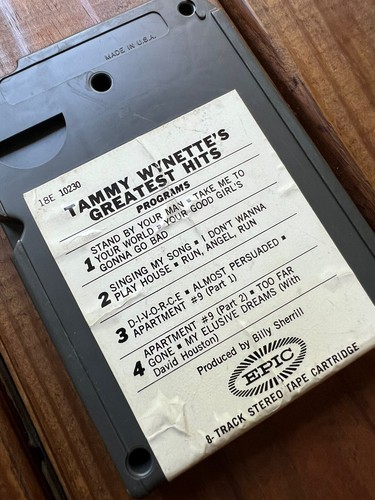 MADE IN U.S.A.
18E 10230
TAMMY WYNETTE'S
GREATEST HITS
PROGRAMS
STAND BY YOUR MAN ▪ TAKE ME TO
1 YOUR WORLD ▪ YOUR GOOD GIRL'S
GONNA GO BAD
2 SINGING MY SONG ▪ I DON'T WANNA
PLAY HOUSE ▪ RUN, ANGEL, RUN
3 D-I-V-O-R-C-E ▪ ALMOST PERSUADED ▪
APARTMENT #9 (Part 1)
APARTMENT #9 (Part 2) ▪ TOO FAR
4 GONE ▪ MY ELUSIVE DREAMS (With
David Houston)
Produced by Billy Sherrill
EPIC
8-TRACK STEREO TAPE CARTRIDGE